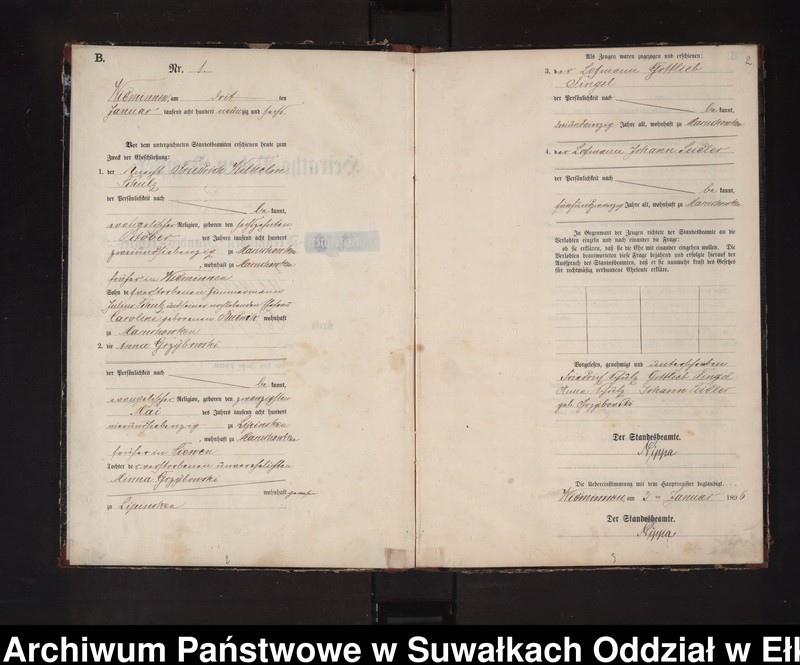 B.
Nr. 1.
Widminnen, am drit ten
Januar tausend acht hundert neunzig und sechs.
Vor dem unterzeichneten Standesbeamten erschienen heute zum
Zweck der Eheschließung:
1. der Friedrich Wilhelm
Schulz
der Persönlichkeit nach
be kannt,
evangelischer Religion, geboren den sechszehnten
Oktober des Jahres tausend acht hundert
zweiundsiebenzig zu Marschowken
, wohnhaft zu Marschowken
früher in Widminnen
Sohn des verstorbenen Zimmermanns
Julius Schulz und seiner Ehefrau
Caroline geborenen wohnhaft
zu Marschowken
2. die Anna Grzybowski
der Persönlichkeit nach
be kannt,
evangelischer Religion, geboren den zwanzigsten
Mai des Jahres tausend acht hundert
vierundsiebenzig zu Lipinsken
, wohnhaft zu Marschowken
früher in
Tochter der verstorbenen unverehelichten
Minna Grzybowski
wohnhaft
zu Lipinsken
2
Als Zeugen waren zugezogen und erschienen:
3. der Losmann Gottlieb
Singel
der Persönlichkeit nach
be kannt,
Jahre alt, wohnhaft zu Marschowken
4. der Losmann Johann Seidler
der Persönlichkeit nach
be kannt,
fünfundzwanzig Jahre alt, wohnhaft zu Marschowken
In Gegenwart der Zeugen richtete der Standesbeamte an die
Verlobten einzeln und nach einander die Frage:
ob sie erklären, daß sie die Ehe mit einander eingehen wollen. Die
Verlobten beantworteten diese Frage bejahend und erfolgte hierauf der
Ausspruch des Standesbeamten, daß er sie nunmehr kraft des Gesetzes
für rechtmäßig verbundene Eheleute erkläre.
Vorgelesen, genehmigt und unterschrieben
Friedrich Schulz Gottlieb Singel
Anna Schulz Johann Seidler
geb. Grzybowski
Der Standesbeamte.
Nippa
Die Uebereinstimmung mit dem Hauptregister beglaubigt
Widminnen, am 3 ten Januar 1896
Der Standesbeamte.
Nippa
2
3
Archiwum Państwowe w Suwałkach Oddział w Ełk